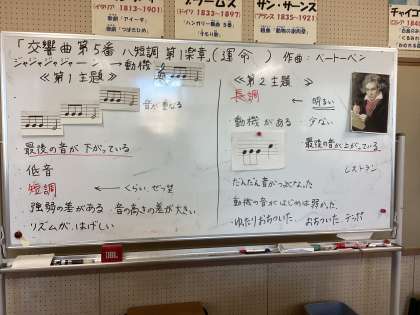 (イタリア 1813〜1901)
歌劇「アイーダ」
歌劇「つばきひめ」
ブラームス
(ドイツ 1833〜1897)
「ハンガリー舞曲 5番」
サン・サーンス
(フランス 1835〜1921)
組曲「動物の謝肉祭」
チャイコ
「交響曲第5番 ハ短調 第1楽章」(運命) 作曲:ベートーベン
ジャジャジャジャーン → 動機
≪第1主題≫
音が重なる
最後の音が下がっている
・低音
・短調 ← くらい、ぜつぼう
・強弱の差がある 音の高さの差が大きい
・リズムが、はげしい
≪第2主題≫
長調 ← 明るい
・動機がある 少ない
最後の音が上がっている
レストラン
・だんだん音がつよくなった
・動機の音がはじめは弱かった
・ゆったりおちついた
JBL